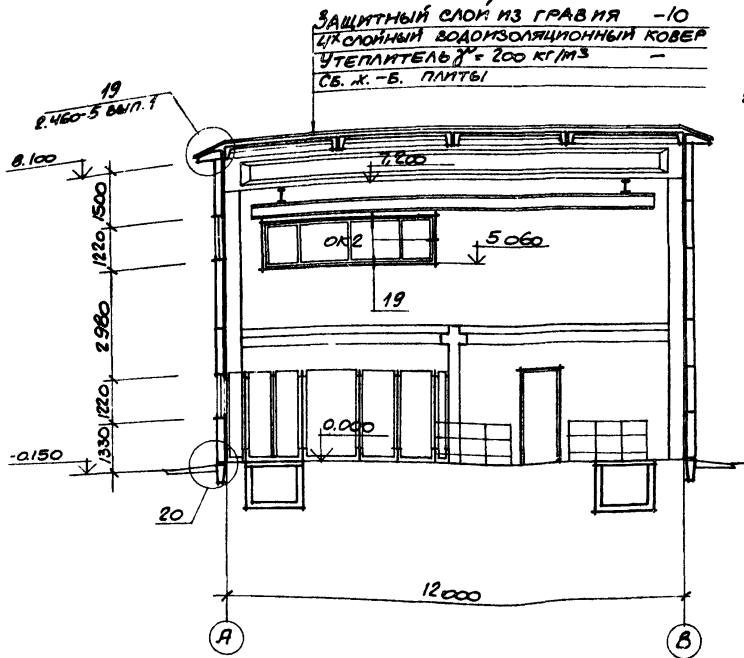 ЗАЩИТНЫЙ СЛОЙ ИЗ ГРАВИЯ -10
4Х СЛОЙНЫЙ ВОДОИЗОЛЯЦИОННЫЙ КОВЕР
УТЕПЛИТЕЛЬ γ = 200 КГ/М3 -
СБ. Ж. -Б. ПЛИТЫ
19
2.460-5 ВЫП. 1
8.100
7,200
1500
1220
ОК2
5.060
19
2980
1220
1330
0.000
-0.150
20
12000
А
В